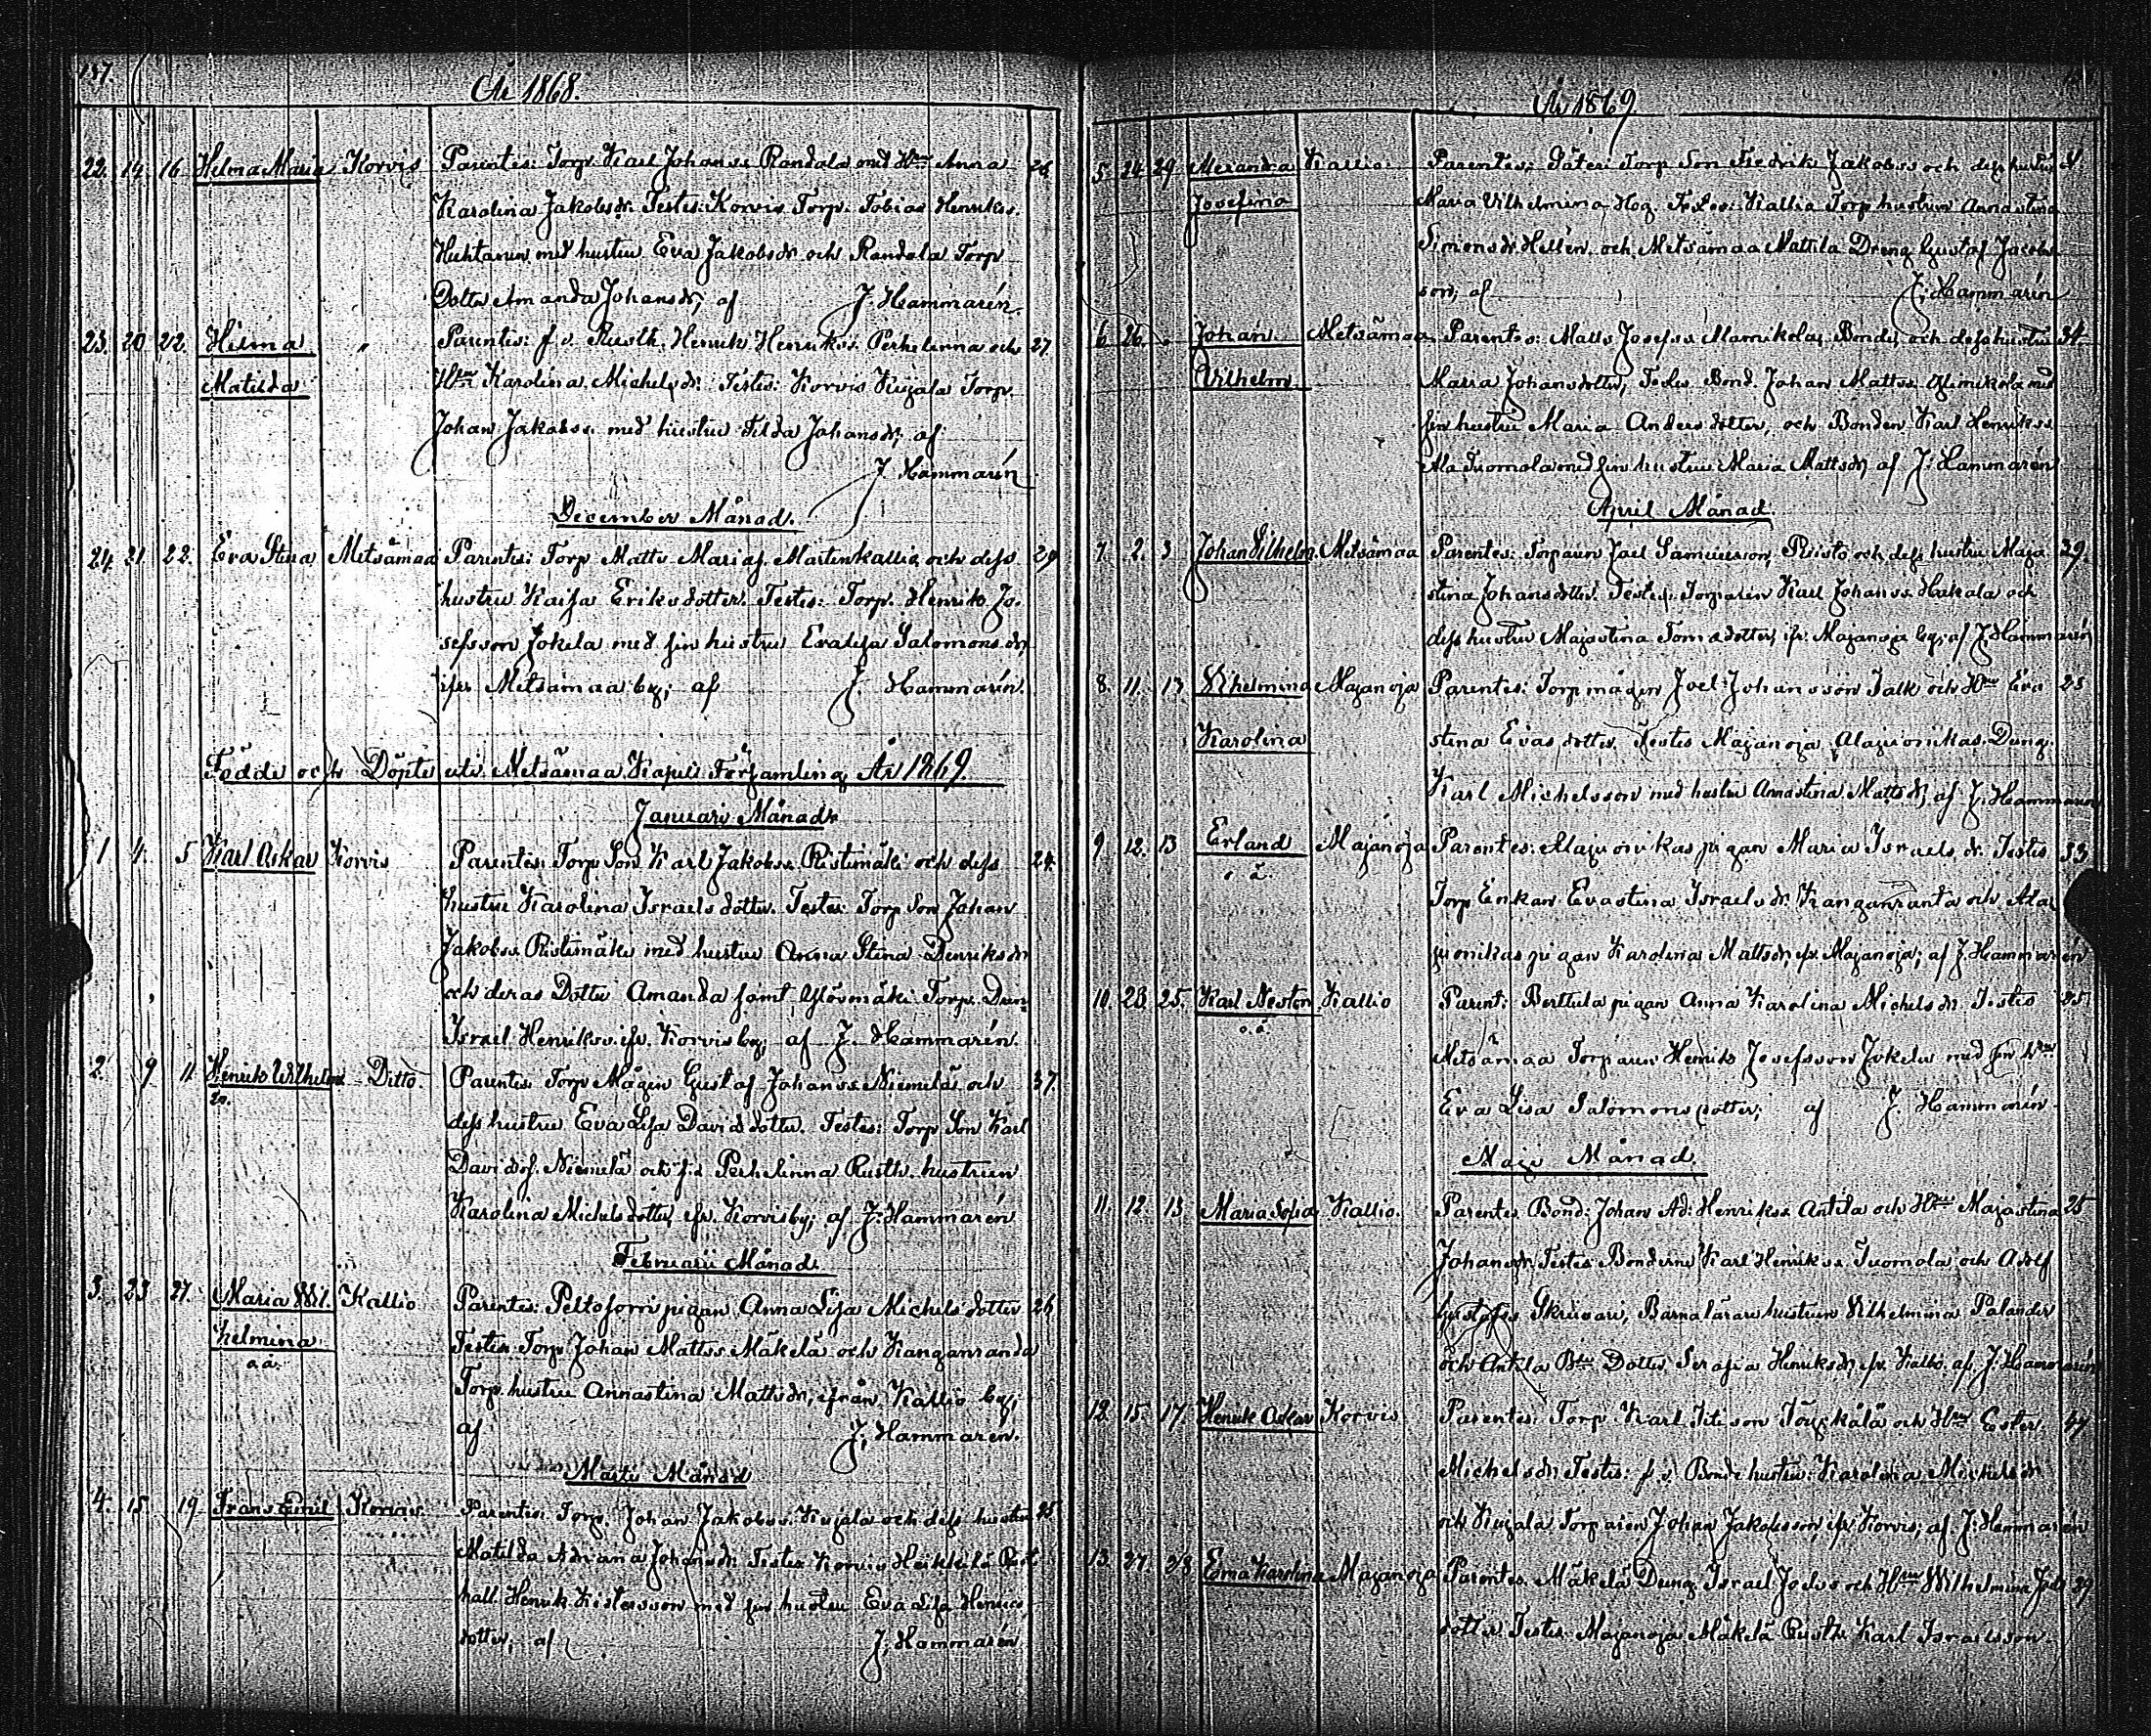 157.
År 1868.
22. 14 16 Helma Maria Korvis Parentes: Torp. Karl Johanss. Randala med Hru Anna 26.
Karolina Jakobsdr. Testes: Korvis Torp. Tobias Henrikss.
Huhtanen med hustru Eva Jakobsdr och Randala Torp
Dotter Amanda Johansdr, af J. Hammarén.
23. 20 22. Hilma " Parentes: f. v. Rusth. Henrik Henrikss. Perhelinna och 27.
Matilda Hru Karolina Michelsdr. Testes: Korvis Kujala Torp.
Johan Jakobss. med hustru Tilda Johansdr. af
J. Hammarén
December Månad.
24. 21. 22. Eva Stina Metsämaa Parentes: Torp Matts Mariaf. Martinkallio och dess 29
hustru Kaisa Eriksdotter. Testes: Torp. Henrik Jo-
sefsson Jokela med sin hustru Evalisa Salomonsdr
ifr. Metsämaa by; af J. Hammarén.
Födde och Döpte uti Metsämaa Kapell Församling År 1869.
Januari Månad
1 4. 5 Karl Oskar Korvis Parentes: Torp. Son Karl Jakobss. Ristimäki och dess 24.
hustru Karolina Israelsdotter. Testes: Torp Son Johan
Jakobss. Ristimäki med hustru Anna Stina Henriksdr
och deras Dotter Amanda samt Torp. Dren
Israel Henrikss. ifr. Korvis by; af J. Hammarén.
2. 9 11. Henrik Wilhelm Ditto Parentes: Torp Mågen Gustaf Johanss. Niemelä och 37.
dess hustru Eva Lisa Davidsdotter. Testes: Torp Son Karl
Davidsf. Niemelä och f.d. Perhelinna Rusth. hustrun
Karolina Michelsdotter, ifr. Korvisby; af J. Hammarén
Februarii Månad.
3. 23 27. Maria Wil- Kallio Parentes: Peltoforri pigan Anna Lisa Michelsdotter 26
helmina Testes Torp Johan Mattss. Mäkelä och Kanganranda
a ä. Torp. hustru Annastina Mattsdr, ifrån Kallio by;
af J. Hammarén.
Marti Månad
4. 15. 19 Frans Emil Korvis Parentes: Torp. Johan Jakobss. Kujala och dess hustru 25
Matilda Adriana Johansdr. Testes Korvis Heikkilä Rust
håll. Henrik Kristersson med sin hustru Eva Lisa Henriks
dotter; af J. Hammarén
År 1869
5. 24 29 Alexandra Kallio. Parentes: Torp Son Fredrik Jakobss och dess hustru
Josefina Maria Vilhelmina Hog. Testes: Kallio Torp hustrun Annastina
Simonsdr Hellén och Metsämaa Mattila Dreng Gustaf Jacobs
son; af J. Hammarén
6. 26. " Johan Metsämaa. Parentes: Matts Josefss. Mamikola, Bonde, och dess hustru 34
Vilhelm Maria Johansdotter, Testes. Bond. Johan Mattss. Ylimikola med
sin hustru Maria Andersdotter, och Bonden Karl Henrikss
Ala Tuomola med sin hustru Maria Mattsdr, af J. Hammarén
April Månad.
7. 2. 3 Johan Vilhelm. Metsämaa Parentes: Torparen Joel Samuelsson, Risto och dess hustru Maja 39.
stina Johansdotter. Testes. Torparen Karl Johanss. Hakala och
dess hustru Majastina Tomasdotter, ifr. Majanoja by; af J. Hammarén
8. 11. 13 Vilhelmina Majanoja Parentes: Torpmågen Joel Johansson Jalk och Hru Eva 25
Karolina stina Evasdotter. Testes Majanoja Alajuonikas Dreng.
Karl Michelsson med hustru Annastina Mattsdr, af J. Hammarén
9. 12. 13 Erland Majanoja Parentes: Alajuonikas pigan Maria Israelsdr. Testes 33
o. ä. Torp Enkan Evastina Israelsdr. Kanganranta och Ala
juonikas pigan Karolina Mattsdr, ifr. Majanoja; af J. Hammarén
10. 23. 25. Karl Nestor Kallio Parent: Berttula pigan Anna Karolina Michelsdr. Testes 25
o. ä. Metsämaa Torparen Henrik Josefsson Jokela med sin Hru
Eva Lisa Salomonsdotter; af J. Hammarén
Maji Månad.
11. 12. 13 Maria Sofia Kallio. Parentes Bond: Johan Ad: Henrikss. Antila och Hru Majastina 25
Johansdr. Testes Bönderne Karl Henrikss Tuomola och Adolf
Gustafss Skrivari, Barnalärare hustrun Vilhelmina Palander
och Antila Bde Dotter Serafia Henriksdr, ifr. Kallio. af J. Hammarén
12. 15. 17. Henrik Oskar Korvis Parentes: Torp. Karl Titi son Töyskälä och Hru Ester 44
Michelsdr Testes: f. v. Bonde hustru: Karolina Michelsdr
och Kujala Torparen Johan Jakobsson, ifr Korvis; af J. Hammarén
13. 27. 28 Edma Karolina Majanoja Parentes. Mäkelä Dreng Israel Joelss och Hru Wilhelmina Joels 29
dotter. Testes: Majanoja Mäkelä Rusth. Karl Israelsson.